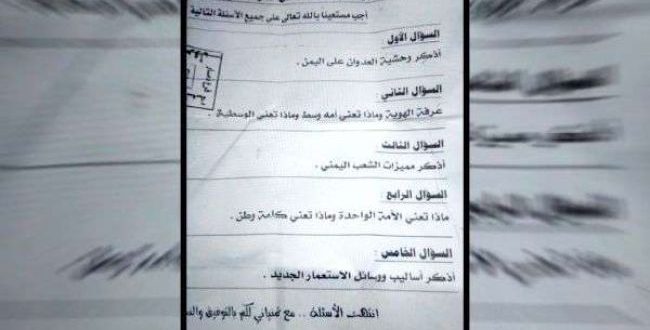 أجب مستعينا بالله تعالى على جميع الأسئلة التالية
السؤال الأول
أذكر وحشية العدوان على اليمن .
السؤال الثاني :
عرفة الهوية وماذا تعني أمه وسط وماذا تعني الوسطية .
السؤال الثالث
أذكر مميزات الشعب اليمني .
السؤال الرابع :
ماذا تعني الأمة الواحدة وماذا تعني كلمة وطن .
السؤال الخامس :
أذكر أساليب ووسائل الاستعمار الجديد .
انتهت الأسئلة .. مع تمنياتي لكم بالتوفيق